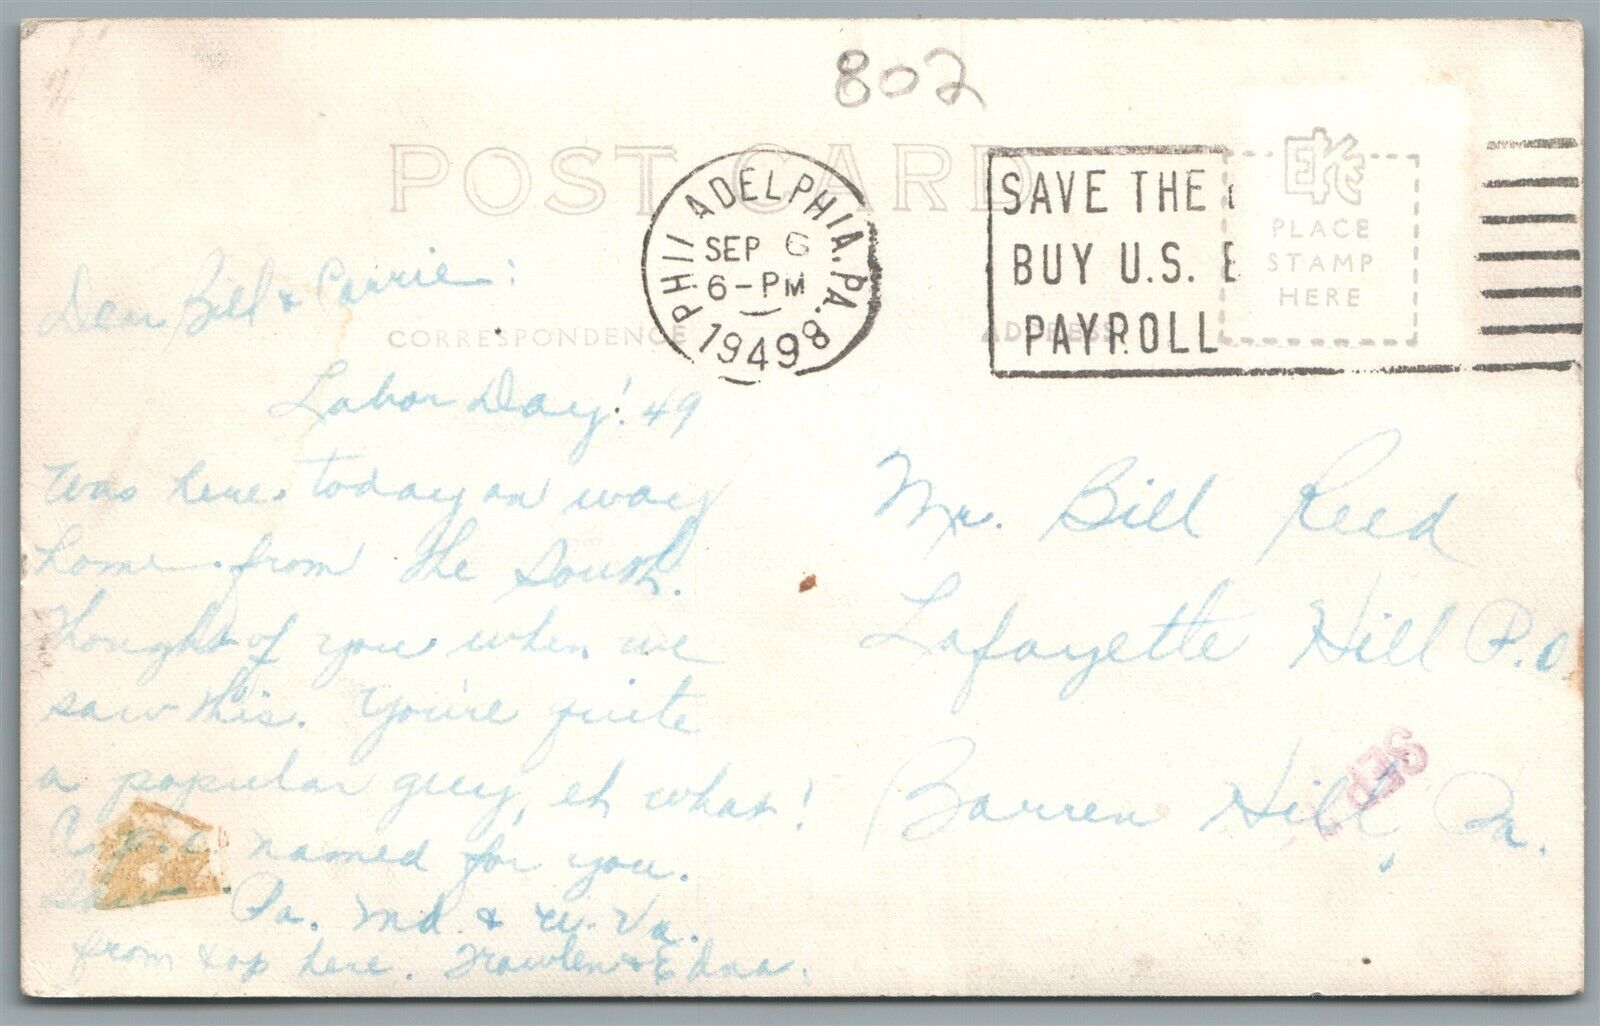 802
POST CARD
PHILADELPHIA. PA. 8
SEP 6
6-PM
1949
SAVE THE
BUY U.S.
PAYROLL
EKC
PLACE
STAMP
HERE
CORRESPONDENCE
ADDRESS
Dear Bill & Carrie:
Labor Day! 49
Was here today on way
home from the South.
Thought of you when we
saw this. You're quite
a popular guy, eh what!
named for you.
Saw Pa. Md. & W. Va.
from top here. & Edna.
Mr. Bill Reed
Lafayette Hill P.O.
Barren Hill, Pa.
SEP